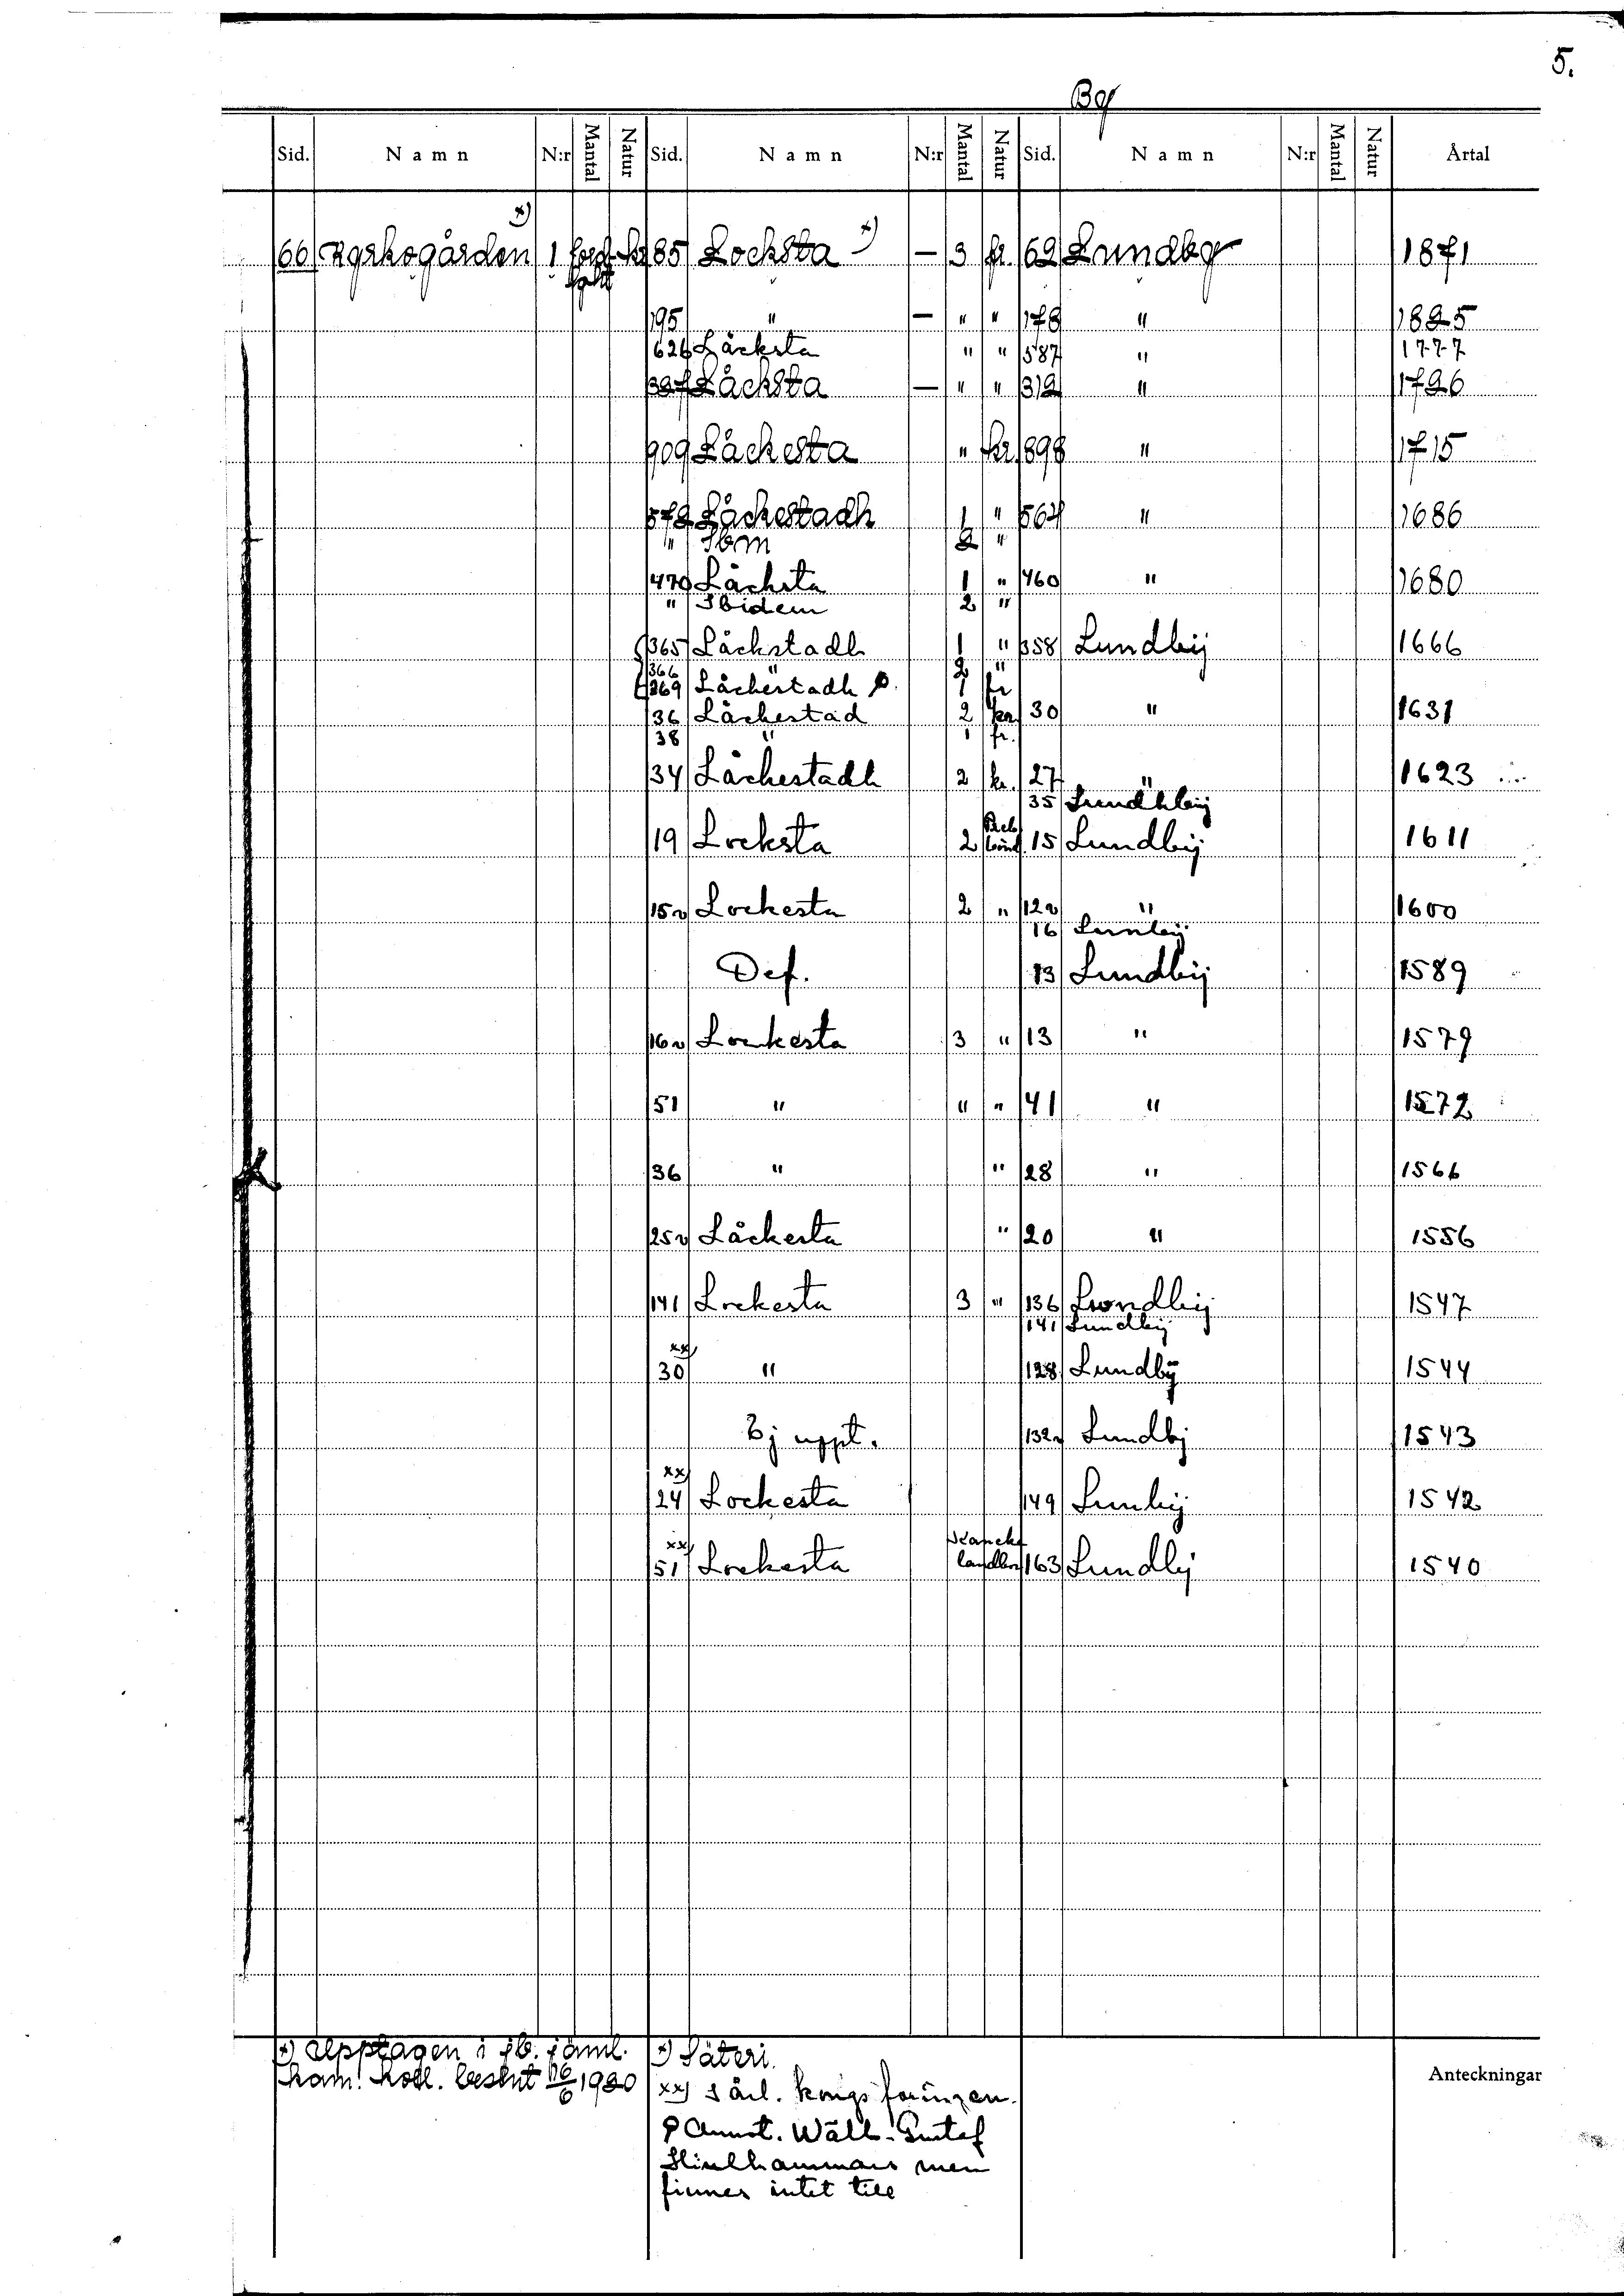 5.
By
Sid. Namn N:r Mantal Natur Sid. Namn N:r Mantal Natur Sid. Namn N:r Mantal Natur Årtal
66 Kyrkogården x) 1 kr 85 Locksta x) — 3 fr. 62 Lundby 1871
195 " — " " 178 " 1825
626 Låcksta " " 587 " 1777
327 Låcksta — " " 312 " 1726
909 Låckesta " kr. 898 " 1715
572 Låckestadh 1 " 564 " 1686
" Ibm 2 "
470 Låcksta 1 " 460 " 1680
" Ibidem 2 "
365 Låckstadh 1 " 358 Lundbij 1666
366 " 2 "
369 Låckestadh φ 1 fr
36 Låckestad 2 kr 30 " 1631
38 " 1 fr.
34 Låckestadh 2 kr. 27 " 1623
35 Lundhbij
19 Locksta 2 15 Lundbij 1611
15v Lockesta 2 " 12v " 1600
16 Lunbij
Def. 13 Lundbij 1589
16v Lockesta 3 " 13 " 1579
51 " " " 41 " 1572
36 " " 28 " 1566
25v Låckesta " 20 " 1556
141 Lockesta 3 " 136 Lwndbij 1547
141 Lundbij
xx)
30 " 128 Lundbÿ 1544
Ej uppt. 132v Lundbj 1543
xx)
24 Lockesta 149 Lunbij 1542
xx)
51 Lockesta 163 Lundbj 1540
x) Upptagen i jb. jäml.
kam. koll. beslut 16/6 1920
x) Säteri.
xx) I årl. kongs faringen.
φ Annot. Wälb. Gustaf
men
finnes intet till
Anteckningar